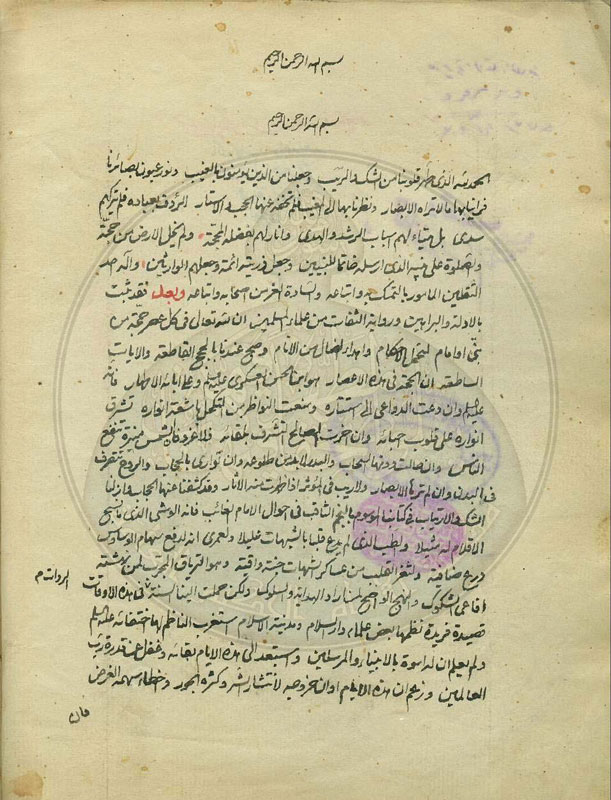 بسم الله الرحمن الرحيم
بسم الله الرحمن الرحيم
الحمد لله الذى طهر قلوبنا من الشك والريب وجعلنا من الذين يؤمنون بالغيب ونور عيون بصائرنا
فرأينا بها ما لا تراه الابصار ونظرنا بها الى الغيب فلم تخفه عنها الحجب والاستار الرؤف بعباده فلم تركهم
سدى بل هيأ لهم اسباب الرشد والهدى وانار لهم بفضله المحجة ولم يخل الارض من حجة
والصلوة على نبيه الذى ارسله خاتما للنبيين وجعل ذريته ائمة وجعلهم الوارثين وآله احد
الثقلين المامور بالتمسك به واتباعه والسادة الغر من اصحابه واتباعه وبعد فقد ثبت
بالادلة والبراهين ورواية الثقات من علماء المسلمين ان لله تعالى فى كل عصر حجة من
نبى او امام لتحمل الاحكام وصح عندنا بالحجج القاطعة والايات
الساطعة ان الحجة فى هذه الاعصار هو ابن الحسن العسكرى عليه وعلى ابائه الاطهار فانه
عليه السلم وان دعت الدواعى الى استتاره ومنعت النواظر من التكحل باشعة انواره تشرق
انواره على قلوب وان حرمت من التشرف بلقائه فلا غرو فالشمس منيرة تنفع
الناس وان حالت دونها السحاب والبدر لابد من طلوعه وان توارى بالحجاب والروح تتصرف
فى البدن وان لم ترها الابصار ولا ريب فى المؤثر اذا ظهرت منه الاثار وقد كشفنا عنها الحجاب وازلنا
الشك والارتياب فى كتابنا الموسوم بالنجم الثاقب فى احوال الامام الغائب فانه الوشى الذى ما نسج
الاقلام له مثيلا والطبيب الذى لم يدع قلبا بالشبهات عليلا ولعمرى انه لدفع سهام الوساوس
درع ضافية ولثغر القلب من عساكر الشبهات جنة واقية وهو الترياق المجرب لمن نهشته
افاعى الشكوك والنهج الواضح لمن اراد الهداية والسلوك ولكن حملت الينا السنة الرواة فى هذه الاوقات
قصيدة فريدة نظمها بعض علماء دار السلام ومدينة الاسلام استغرب الناظم لها اختفائه عليه السلم
ولم يعلم ان له اسوة بالانبياء والمرسلين واستبعد الى هذه الايام بقائه وغفل عن قدرة رب
العالمين وزعم ان هذه الايام اوان خروجه لانتشار الشر وكثرة الجور واخطا سهمه الغرض
فان